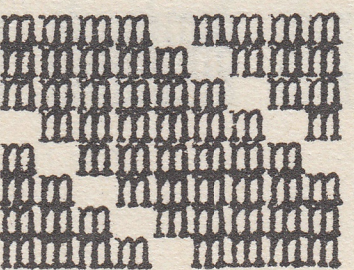 mmmm mmmm
mmmmm mmm
mmmmmm mm
mmmmmm m
m mmmmmm
mm mmmmmm
mmm mmmmm
mmmm mmmm